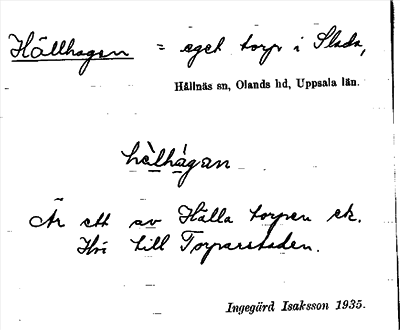 Hällhagen = eget torp i Slada,
Hållnäs sn, Olands hd, Uppsala län.
hèlhágan
Är ett av Hälla torpen ek.
Hör till Torparstaden.
Ingegärd Isaksson 1935.